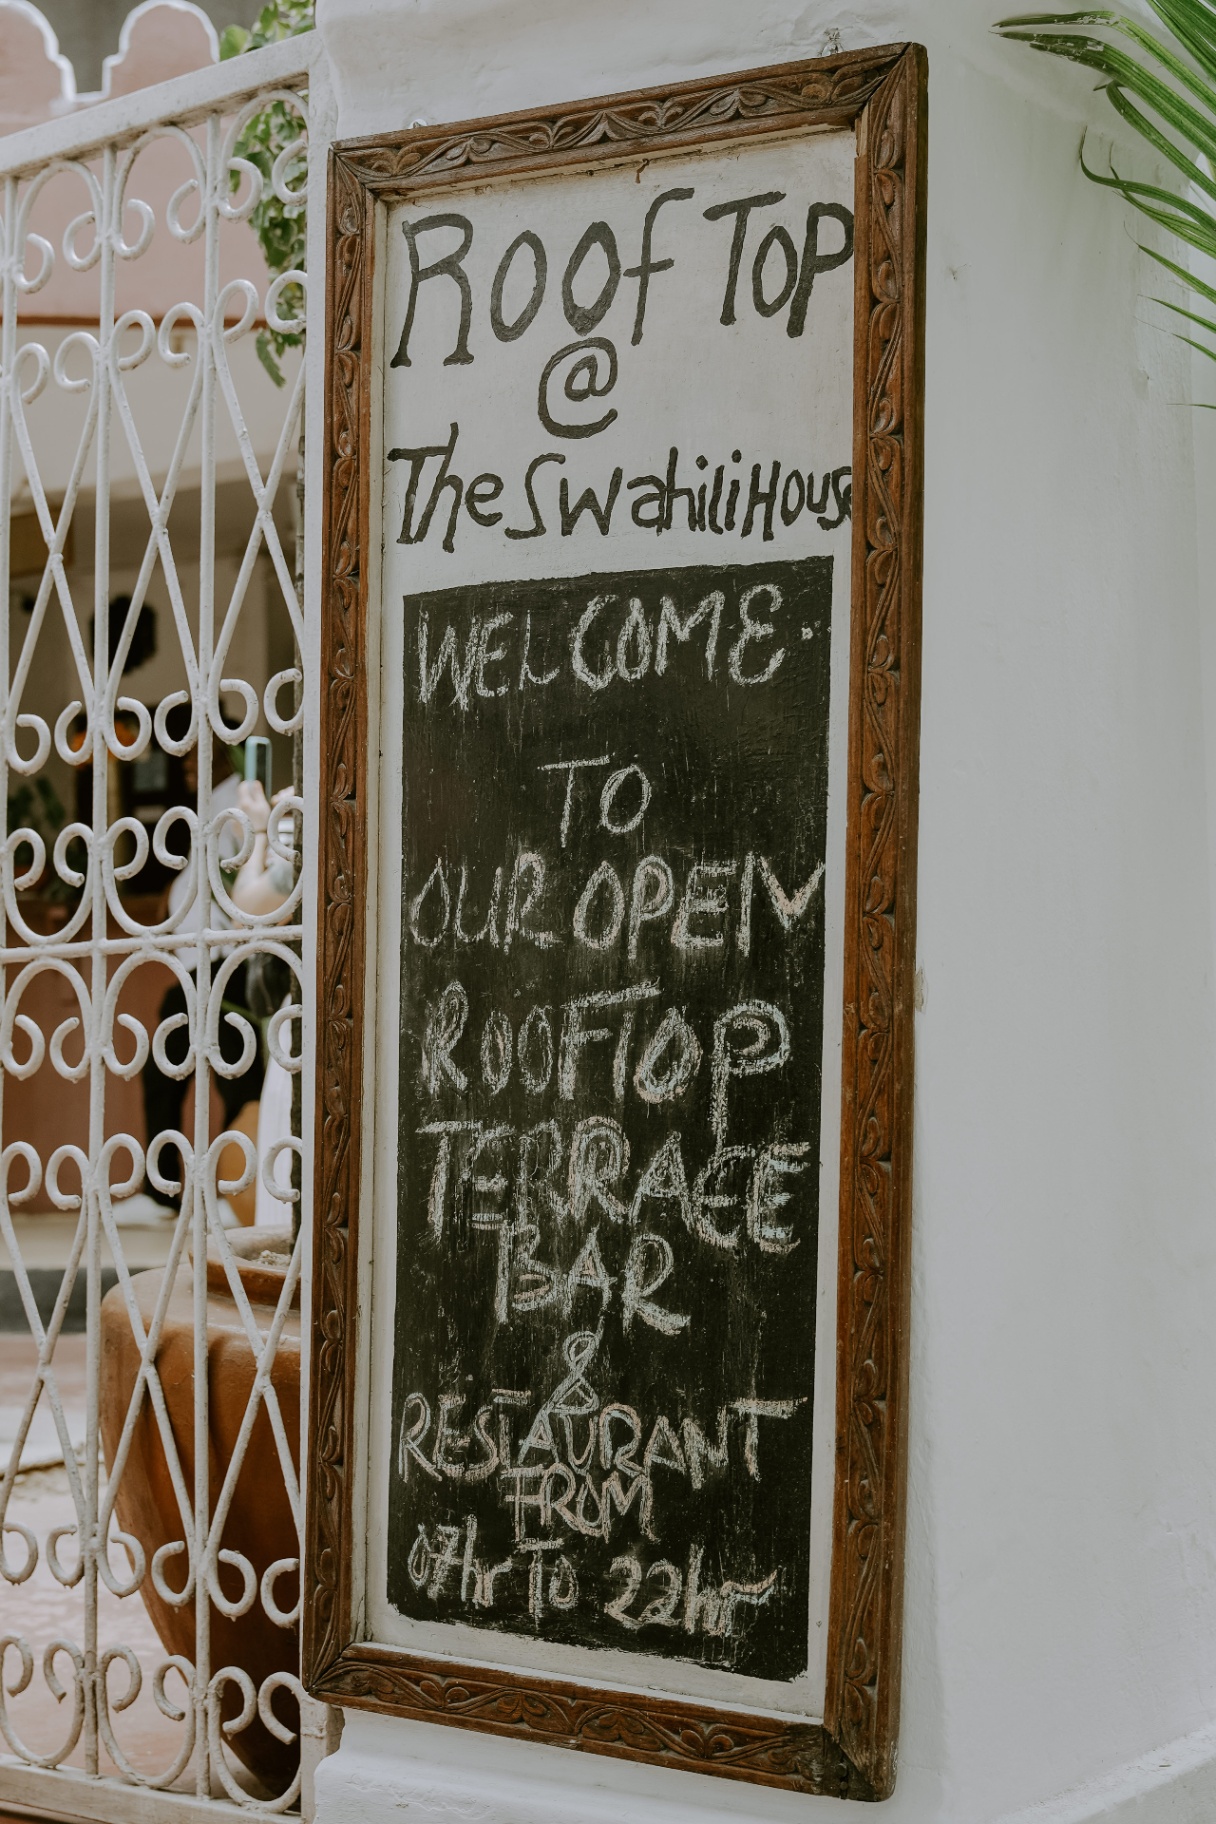 Roof Top
@
The Swahili House
WELCOME
TO
OUR OPEN
ROOFTOP
TERRACE
BAR
&
RESTAURANT
FROM
07hr To 22hr